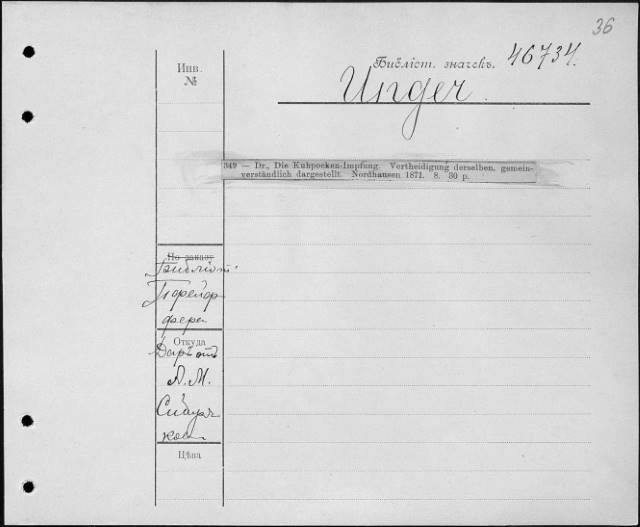 36
Инв.
№
Библіот. значекъ. 46734.
Unger.
349 — Dr., Die Kuhpocken-Impfung. Vertheidigung derselben, gemein-
verständlich dargestellt. Nordhausen 1871. 8. 30 p.
По заказу
Библіот.
Откуда
Даръ отъ
А. М.
Сибиря
кова
Цѣна